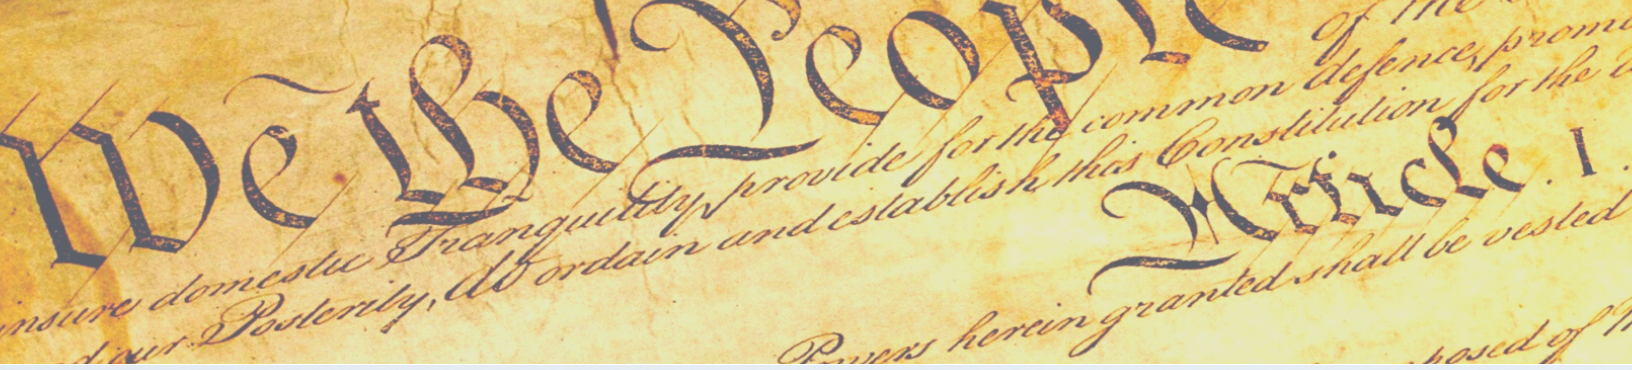 We the People of the
insure domestic Tranquility, provide for the common defence, promo
our Posterity, do ordain and establish this Constitution for the
Article. I.
Powers herein granted shall be vested
posed of